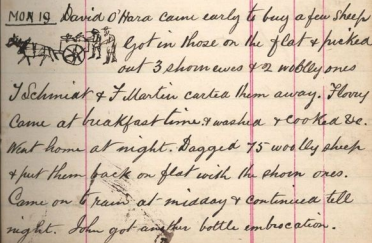 MON 19 David O'Hara came early to buy a few sheep
Got in those on the flat & picked
out 3 shorn ewes & 2 woolly ones
T Schmidt & F Martin carted them away. Florry
came at breakfast time & washed & cooked &c.
Went home at night. Dagged 75 woolly sheep
& put them back on flat with the shorn ones.
Came on to rain at midday & continued till
night. John got another bottle embrocation.